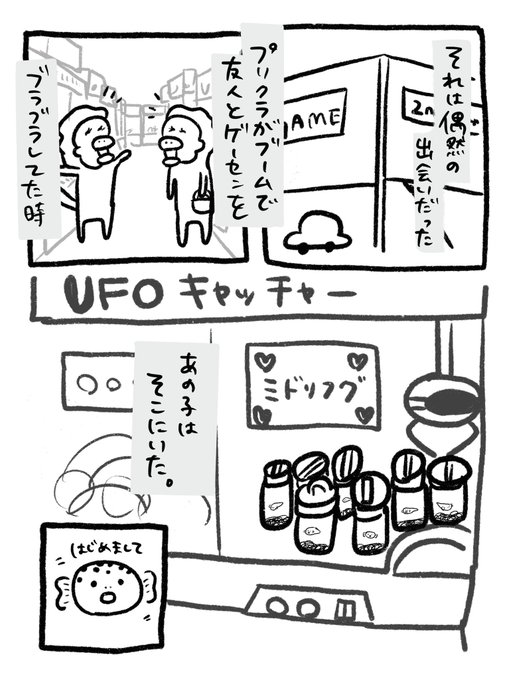 それは偶然の
出会いだった
GAME
プリクラがブームで
友人とゲーセンを
ブラブラしてた時
UFO キャッチャー
ミドリフグ
あの子は
そこにいた。
はじめまして